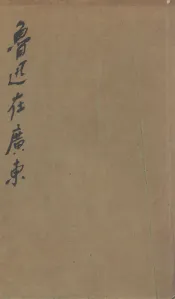 魯迅在廣東